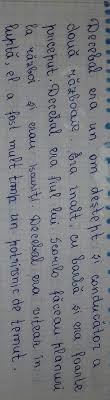 Decebal era un om deștept și conducător a
două războaie. Era înalt cu barbă și era foarte
priceput. Decebal era fiul lui Scorilo făceau planuri
la război și erau isusiți. Decebal era viteaz în
luptă el a fost mult timp un potrivnic de temut.